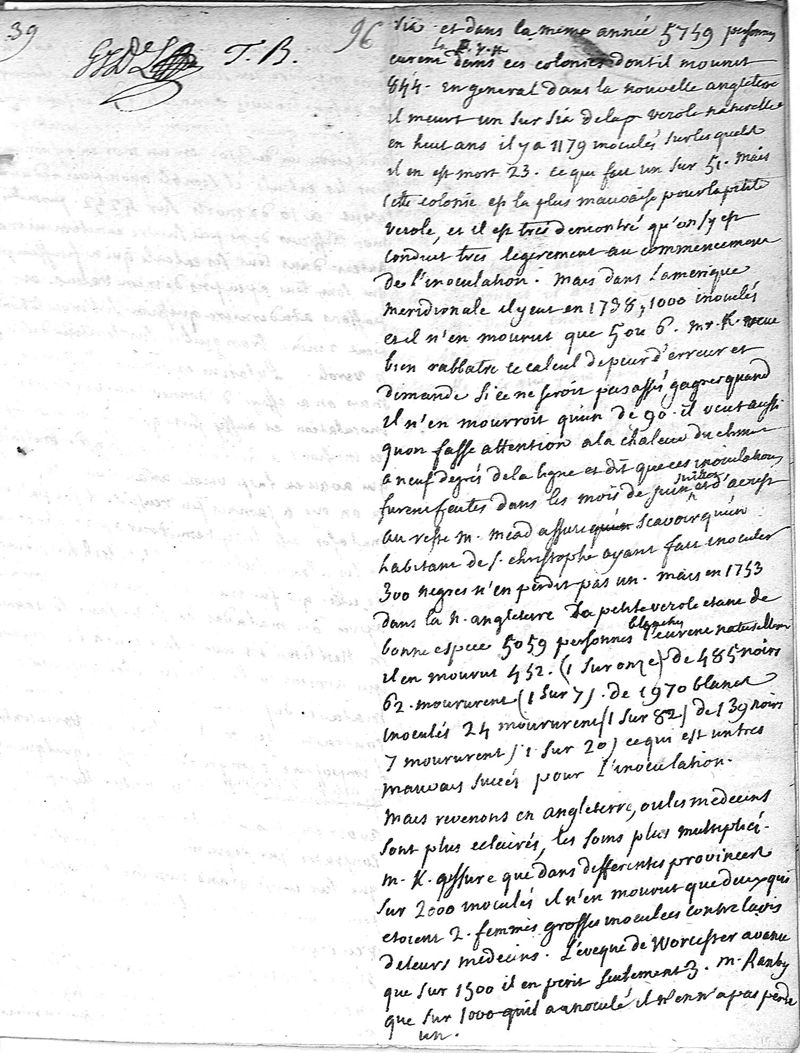 39
96
T. B.
six et dans la meme année 5759 personnes
la P. V. N.
eurent dans ces colonies dont il mourut
844. En general dans la nouvelle angleterre
il meurt un sur six de la p verole naturelle
en huit ans il y a 1179 inoculés sur lesquels
il en est mort 23. ce qui fait un sur 51. mais
cette colonie est la plus mauvaise pour la petite
verole, et il est tres demontré qu'on s'y est
conduit tres legerement au commencement
de l'inoculation. Mais dans l'amerique
meridionale il y eut en 1738, 1000 inoculés
et il n'en mourut que 5 ou 6. mr. K. veut
bien rabbatre ce calcul de peur d'erreur et
demande si ce ne seroit pas assés gagner quand
il n'en mourroit qu'un de 90. il veut aussi
quon fasse attention a la chaleur du climat
a neuf degrés de la ligne et dit que ces inoculations
juillet
furent faites dans les mois de juin et d'aoust
au reste m. mead assure qu'un scavoir qu'un
habitant de s. christophe ayant fait inoculer
300 negres n'en perdit pas un. mais en 1753
dans la n. angleterre la petite verole etant de
blanches
bonne espece 5059 personnes l'eurent naturellem
il en mourut 452. (1 sur onze) de 485 noirs
62. moururent (1 sur 7). de 1970 blancs
inoculés 24 moururent (1 sur 82) de 139 noirs
7 moururent (1 sur 20) ce qui est un tres
mauvais succés pour l'inoculation.
Mais revenons en angleterre, ou les medecins
sont plus eclairés, les soins plus multiplié.
m. K. assure que dans differentes provinces
sur 2000 inoculés il n'en mourut que deux qui
etoient 2. femmes grosses inoculées contre l'avis
de leurs medecins. L'eveque de Worcester avance
que sur 1500 il en perit seulement 3. m. Ranby
que sur 1000 quil a inoculé il n'en n'a pas perdu
un.